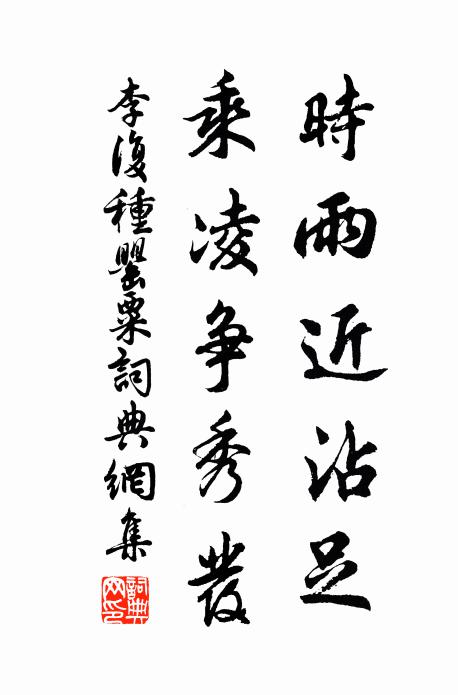 時雨近沾足
乘凌争秀發
李復種罌粟詞典網集
詞典網印